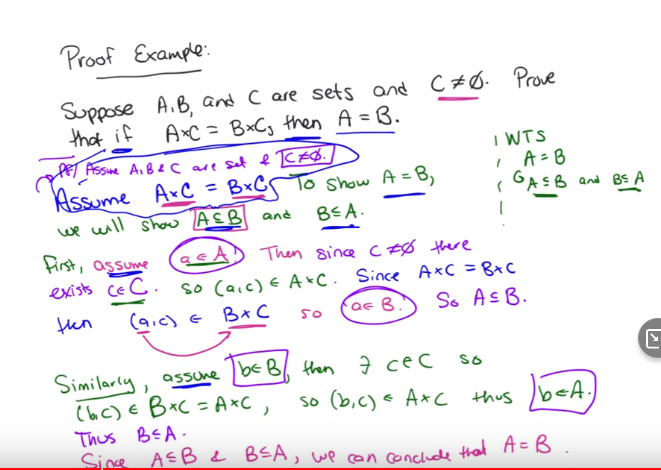 Proof Example:
Suppose A, B, and C are sets and C ≠ Ø. Prove
that if A×C = B×C, then A = B.
Pf/ Assume A, B & C are set & C≠Ø.
Assume A×C = B×C. To show A = B,
we will show A⊆B and B⊆A.
WTS
A = B
↳ A⊆B and B⊆A
First, assume a∈A. Then since C≠Ø there
exists c∈C. So (a,c) ∈ A×C. Since A×C = B×C
then (a,c) ∈ B×C so a∈B. So A⊆B.
Similarly, assume b∈B, then ∃ c∈C so
(b,c) ∈ B×C = A×C, so (b,c) ∈ A×C thus b∈A.
Thus B⊆A.
Since A⊆B & B⊆A, we can conclude that A = B.